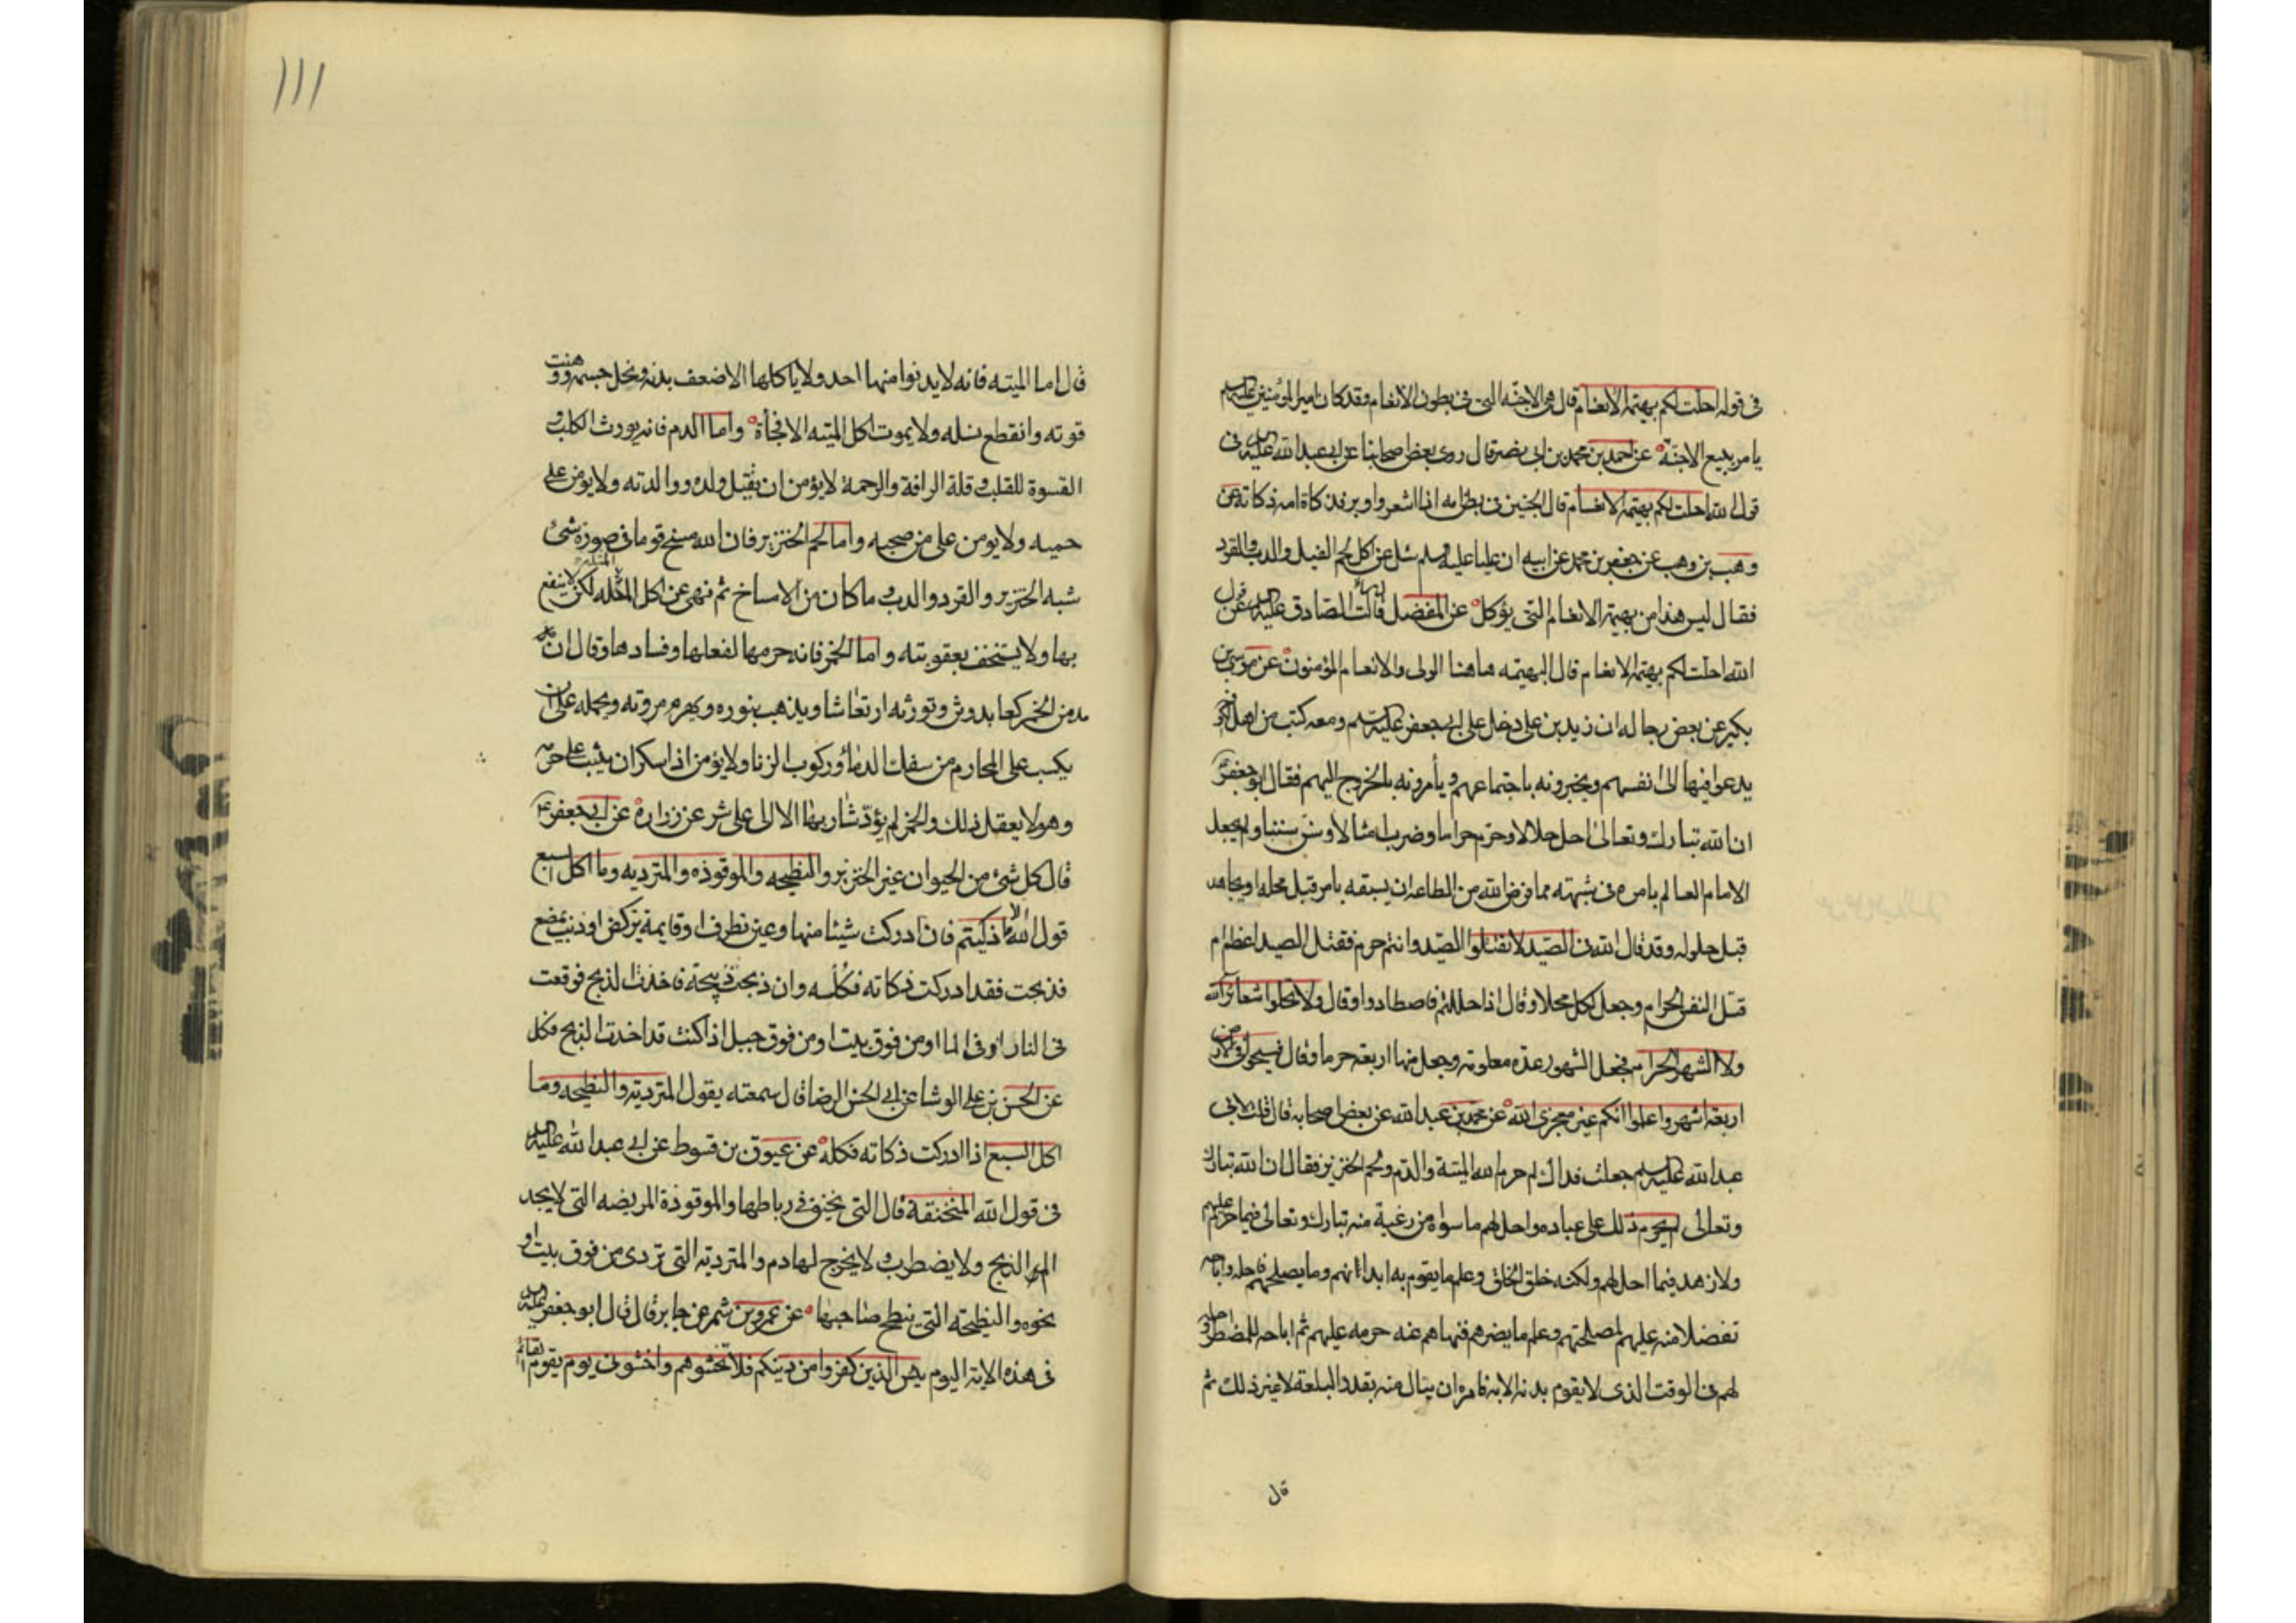 فى قوله احلت لكم بهيمة الانعام قال هى الاجنه التى فى بطون الانعام وقد كان امير المؤمنين عليه السلم
يامر ببيع الاجنة عن احمد بن محمد بن ابى نصر قال روى بعض اصحابنا عن ابى عبد الله عليه السلم فى
قول الله احلت لكم بهيمة الانعام قال الجنين فى بطن امه اذا اشعر واوبر فذكاة امه ذكاته عن
وهب بن وهب عن جعفر بن محمد عن ابيه ان عليا عليه وسلم سئل عن اكل لحم الفيل والدب والقرد
فقال ليس هذا من بهيمة الانعام التى يؤكل عن المفضل قالت الصادق عليه السلم عن قول
الله احلت لكم بهيمة الانعام قال البهيمه هاهنا الولى والانعام المؤمنون عن موسى بن
بكير عن بعض رجاله ان زيد بن على دخل على ابى جعفر عليه السلم ومعه كتب من اهل الكوفه
يدعوا فيها الى انفسهم ويخبرونه باجتماعهم ويأمرونه بالخروج اليهم فقال ابو جعفر
ان الله تبارك وتعالى احل حلالا وحرم حراما وضرب امثالا وسن سننا ولم يجعل
الامام العالم بامره فى شبهته مما فرض الله من الطاعه ان يسبقه بامر قبل محله او يجاهد
قبل حلوله وقد قال الله فى الصيد لا تقتلوا الصيد وانتم حرم فقتل الصيد اعظم ام
قتل النفس الحرام وجعل لكل محلا وقال اذا حللتم فاصطادوا وقال ولا تحلوا شعائر الله
ولا الشهر الحرام فجعل الشهور عدة معلومة وجعل منها اربعة حرما وقال فسيحوا فى الارض
اربعة اشهر واعلموا انكم غير معجزى الله عن محمد بن عبد الله عن بعض اصحابه قال قلت لابى
عبد الله عليه السلم جعلت فداك لم حرم الله الميتة والدم ولحم الخنزير فقال ان الله تبارك
وتعالى لم يحرم ذلك على عباده واحل لهم ما سواه من رغبة منه تبارك وتعالى فيما حرم عليهم
ولا زهد فيما احل لهم ولكنه خلق الخلق وعلم ما يقوم به ابدانهم وما يصلحهم فاحله واباحه
تفضلا منه عليهم لمصلحتهم وعلم ما يضرهم فنهاهم عنه حرمه عليهم ثم اباحه للمضطر واحله
لهم فى الوقت الذى لا يقوم بدنه الا به فامره ان ينال منه بقدر البلغة لا غير ذلك ثم
قال
١١١
قال اما الميته فانه لا يدنوا منها احد ولا ياكلها الا ضعف بدنه ونحل جسمه ووهنت
قوته وانقطع نسله ولا يموت اكل الميته الا فجأة واما الدم فانه يورث الكلب و
القسوة للقلب وقلة الرافة والرحمة لا يؤمن ان يقتل ولده ووالدته ولا يؤمن على
حميمه ولا يومن على من صحبه واما لحم الخنزير فان الله مسخ قوما فى صورة شىء
شبه الخنزير والقرد والدب وما كان من الامساخ ثم نهى عن اكل المثله لكى لا ينتفع
بها ولا يستخف بعقوبته واما الخمر فانه حرمها لفعلها وفسادها وقال ان
مدمن الخمر كعابد وثن وتورثه ارتعاشا ويذهب بنوره ويهرم مروته ويحمله على ان
يكسب على المحارم من سفك الدماء وركوب الزنا ولا يؤمن اذا سكر ان يثب على حرمه
وهو لا يعقل ذلك والخمر لم يؤد شاربها الا الى على شر عن زرارة عن ابى جعفر ع
قال كل شىء من الحيوان غير الخنزير والنطيحه والموقوذه والمترديه وما اكل السبع
قول الله الا ما ذكيتم فان ادركت شيئا منها وعين تطرف او قايمة تركض او ذنب يمصع
فذبحت فقد ادركت ذكاته فكله وان ذبحت ذبيحة فاخذت الذبح فوقعت
فى النار او فى الما او من فوق بيت او من فوق جبل اذا كنت قد اخدت الذبح فكل
عن الحسن بن على الوشا عن ابى الحسن الرضا قال سمعته يقول المتردية والنطيحه وما
اكل السبع اذا ادركت ذكاته فكله عن عيوق بن قسوط عن ابى عبد الله عليه السلم
فى قول الله المنخنقة قال التى يختنق فى رباطها والموقوذة المريضه التى لا يجد
الم الذبح ولا يضطرب ولا يخرج لها دم والمتردية التى تردى من فوق بيت او
نحوه والنطيحته التى ينطح صاحبها عن عمرو بن شمر عن جابر قال قال ابو جعفر عليه السلم
فى هذه الاية اليوم يئس الذين كفروا من دينكم فلا تخشوهم واخشونى يوم يقوم القائم